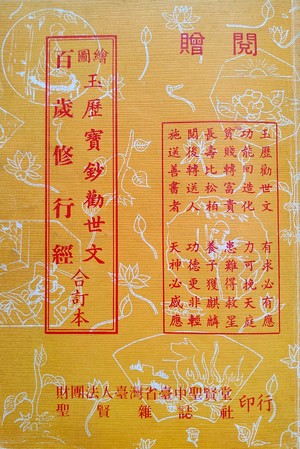 贈閱
繪圖
玉歷寶鈔勸世文
百歲修行經
合訂本
玉歷勸世文 有求必有應
功能回造化 力可挽天庭
貧賤轉富貴 患難得救星
長壽比松柏 養子獲麒麟
閱後轉送人 功德更非輕
施送善書者 天神必感應
財團法人臺灣省臺中聖賢堂
聖賢雜誌社
印行